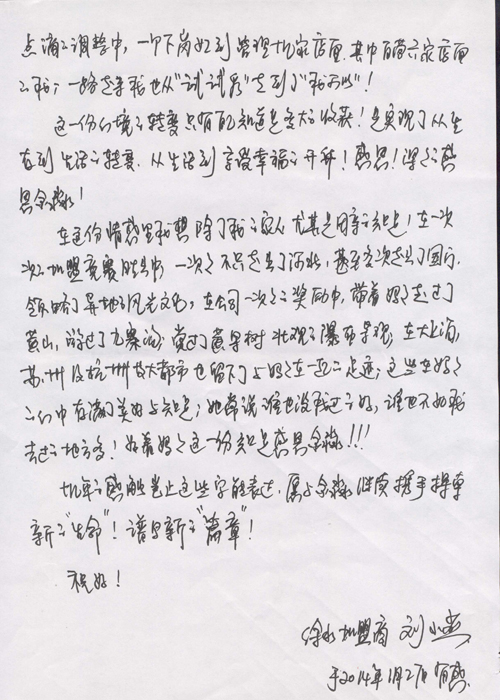 点滴之调整中，一个下岗妇到管理九家店面，其中自营六家店面
之我；一路走来我也从“试试看”走到了“我可以”！
这一份心境之转变只有自己知道是多大之收获！是实现了从生
存到生活之转变，从生活到享受幸福之开始！感恩！深深之感
恩
在这份情感里我想除了我之家人尤其是母亲之知足！在一次
次之加盟竞赛活动中，一次次不只走出了河北，甚至多次走出了国门，
领略了异地之风光文化，在公司一次次之奖励中，带着妈妈走过了
黄山，游过了九寨沟；赏过了黄果树壮观之瀑布景观，在大上海，
苏州及杭州等大都市也留下了与妈妈在一起之足迹；这些在妈妈
之心中存满了美好与知足；她常说谁也没我过之好，谁也不如我
去过之地方多！妈妈这一份知足感恩！！！
九年之感触岂止这些字能表达，愿与继续携手撰章
新之“生命”！谱写新之“篇章”！
祝好！
徐水加盟商 刘小
于2014年1月2日